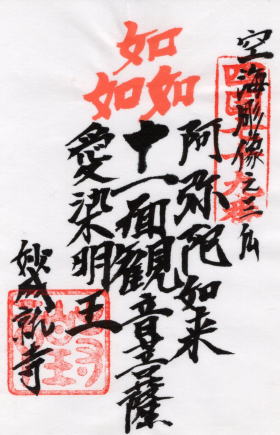 空海彫像之三
如
如如
阿弥陀如来
十一面観音菩薩
愛染明王
妙成就寺